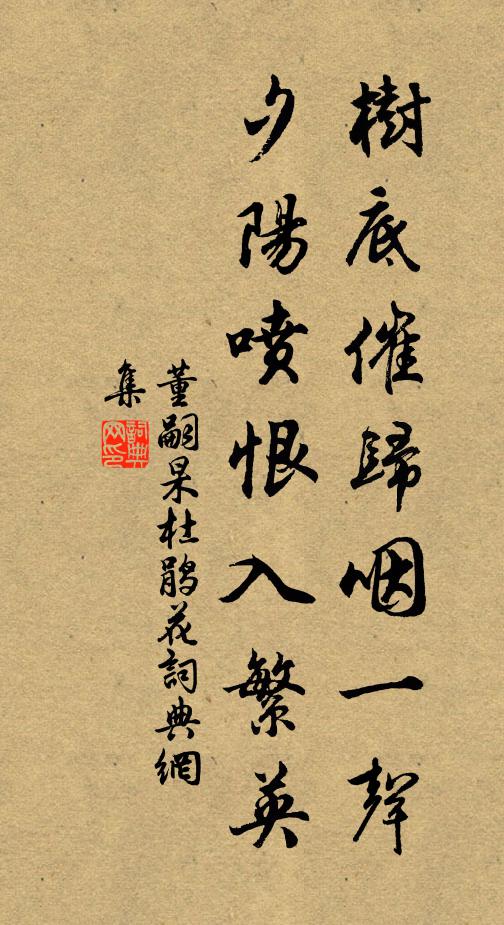 樹底催歸咽一聲
夕陽噴恨入繁英
董嗣杲杜鵑花詞典網
集
詞典
网印